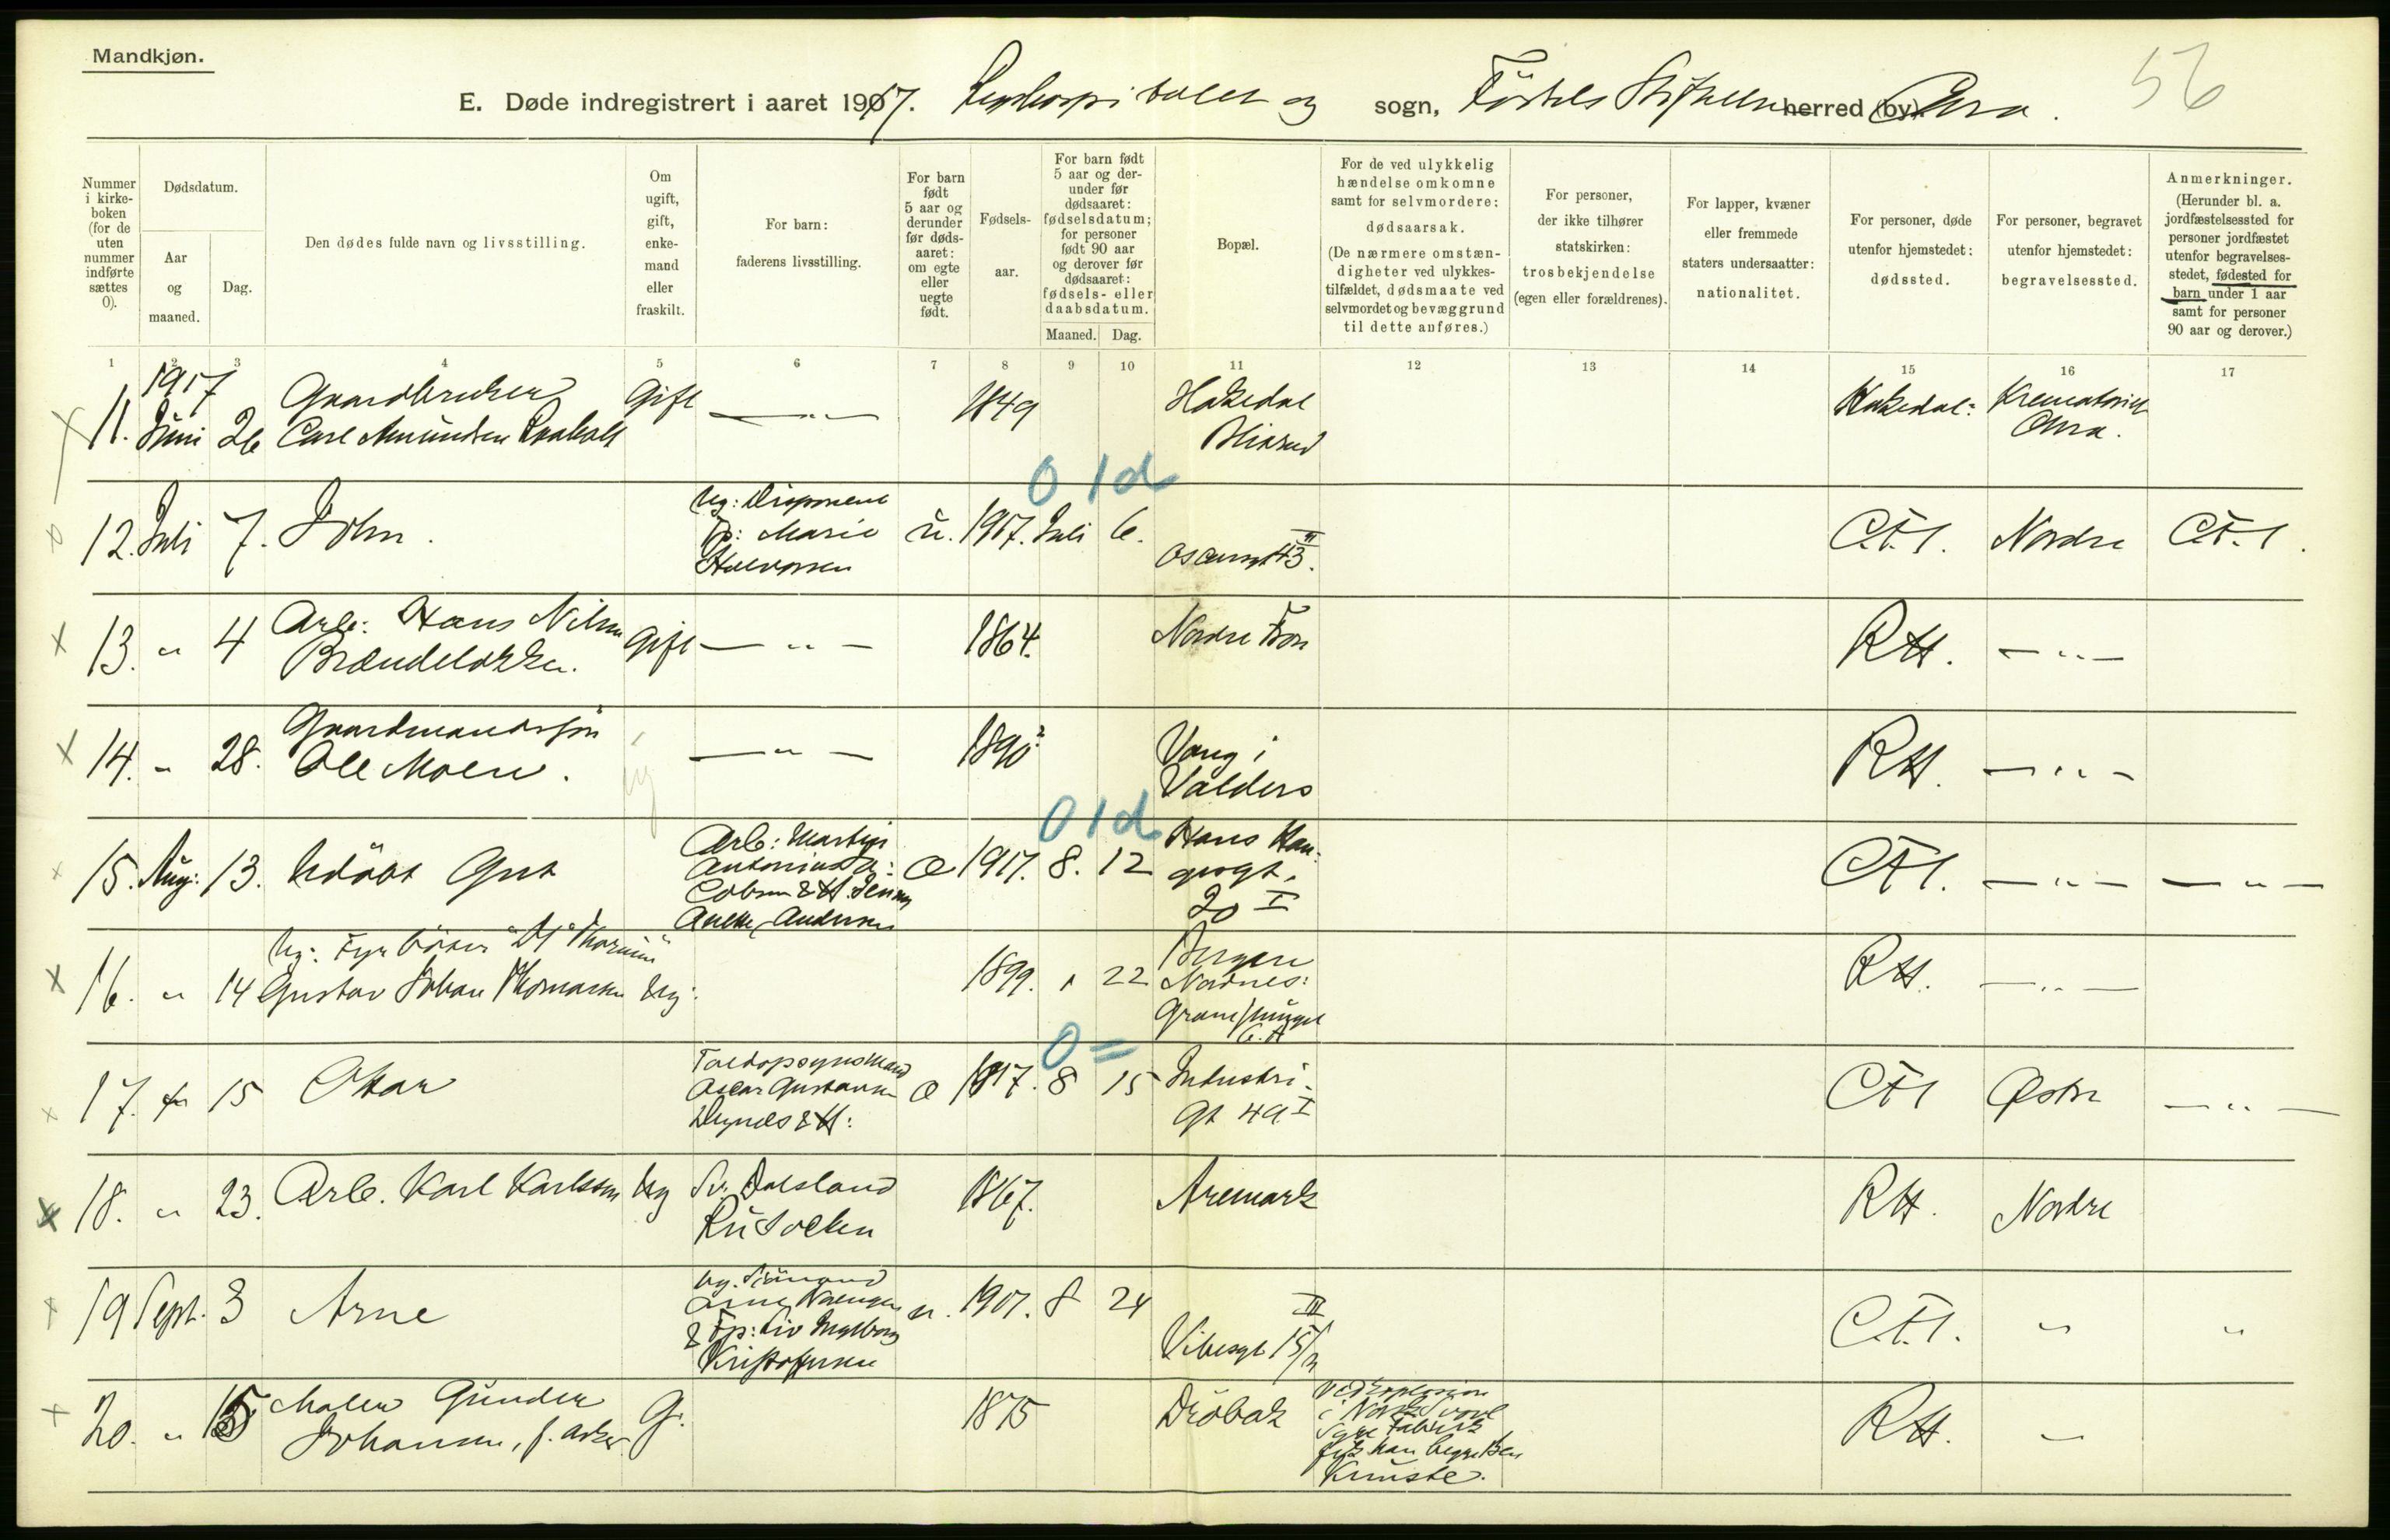 Mandkjøn.
56
E. Døde indregistrert i aaret 1917. og sogn, herred (by)
Nummer i kirke-boken (for de uten nummer indførte sættes 0).
Dødsdatum.
Aar og maaned.
Dag.
Den dødes fulde navn og livsstilling.
Om ugift, gift, enke-mand eller fraskilt.
For barn: faderens livsstilling.
For barn født 5 aar og derunder før døds-aaret: om egte eller uegte født.
Fødsels-aar.
For barn født 5 aar og der-under før dødsaaret: fødselsdatum; for personer født 90 aar og derover før dødsaaret: fødsels- eller daabsdatum.
Maaned.
Dag.
Bopæl.
For de ved ulykkelig hændelse omkomne samt for selvmordere: dødsaarsak. (De nærmere omstæn-digheter ved ulykkes-tilfældet, dødsmaate ved selvmordet og bevæggrund til dette anføres.)
For personer, der ikke tilhører statskirken: trosbekjendelse (egen eller forældrenes).
For lapper, kvæner eller fremmede staters undersaatter: nationalitet.
For personer, døde utenfor hjemstedet: dødssted.
For personer, begravet utenfor hjemstedet: begravelsessted.
Anmerkninger. (Herunder bl. a. jordfæstelsessted for personer jordfæstet utenfor begravelses-stedet, fødested for barn under 1 aar samt for personer 90 aar og derover.)
1 2 3 4 5 6 7 8 9 10 11 12 13 14 15 16 17
1917
11. Juni 26 Gaardbruker Carl Amundsen Gift — " — 1849 Hakedal Hakedal: Krematoriet
0 1d
12. Juli 7. John. Ug: Disponent Marie Halvorsen u. 1917. Juli 6. Oscarsgt 43 III. C.F.1. Nordre C.F.1.
13. " 4 Arb: Hans Nilsen Brændeløkken. Gift — " — 1864. Nordre Fron RH. — " —
14. " 28. Gaardmandssøn Ole Moen. ug — " — 1890? Vang i Valders RH. — " —
0 1d
15. Aug: 13. Udøbt Gut Arb: Martin Antonius Jenny Anette Andersen 1917. 8. 12 Hans Hau-gesgt. 20 I CF1. — " — — " —
16. " 14 Ug: Fyrbøter Gustav Johan Thomassen Ug: 1899. 1 22 Bergen Nordnes: RH. — " —
0 =
17. " 15 Ottar Toldopsynsmand Oscar Gustavsen 1917. 8 15 Industri-gt 49 I CF1 Østre — " —
18. " 23. Arb. Karl Karlsson Ug Dalsland 1867. Aremark RH. Nordre
19 Sept. 3 Arne ug. Sjømand Kristoffersen u. 1907. 8 24 Vibesgt 15/ III C.F.1. " "
20. " 15 Maler Gunder Johansen, f. Asker G. 1875 Drøbak Ved Explosion i Norsk Svovl Syre Fabrik fik han begge Ben knuste. RH. "